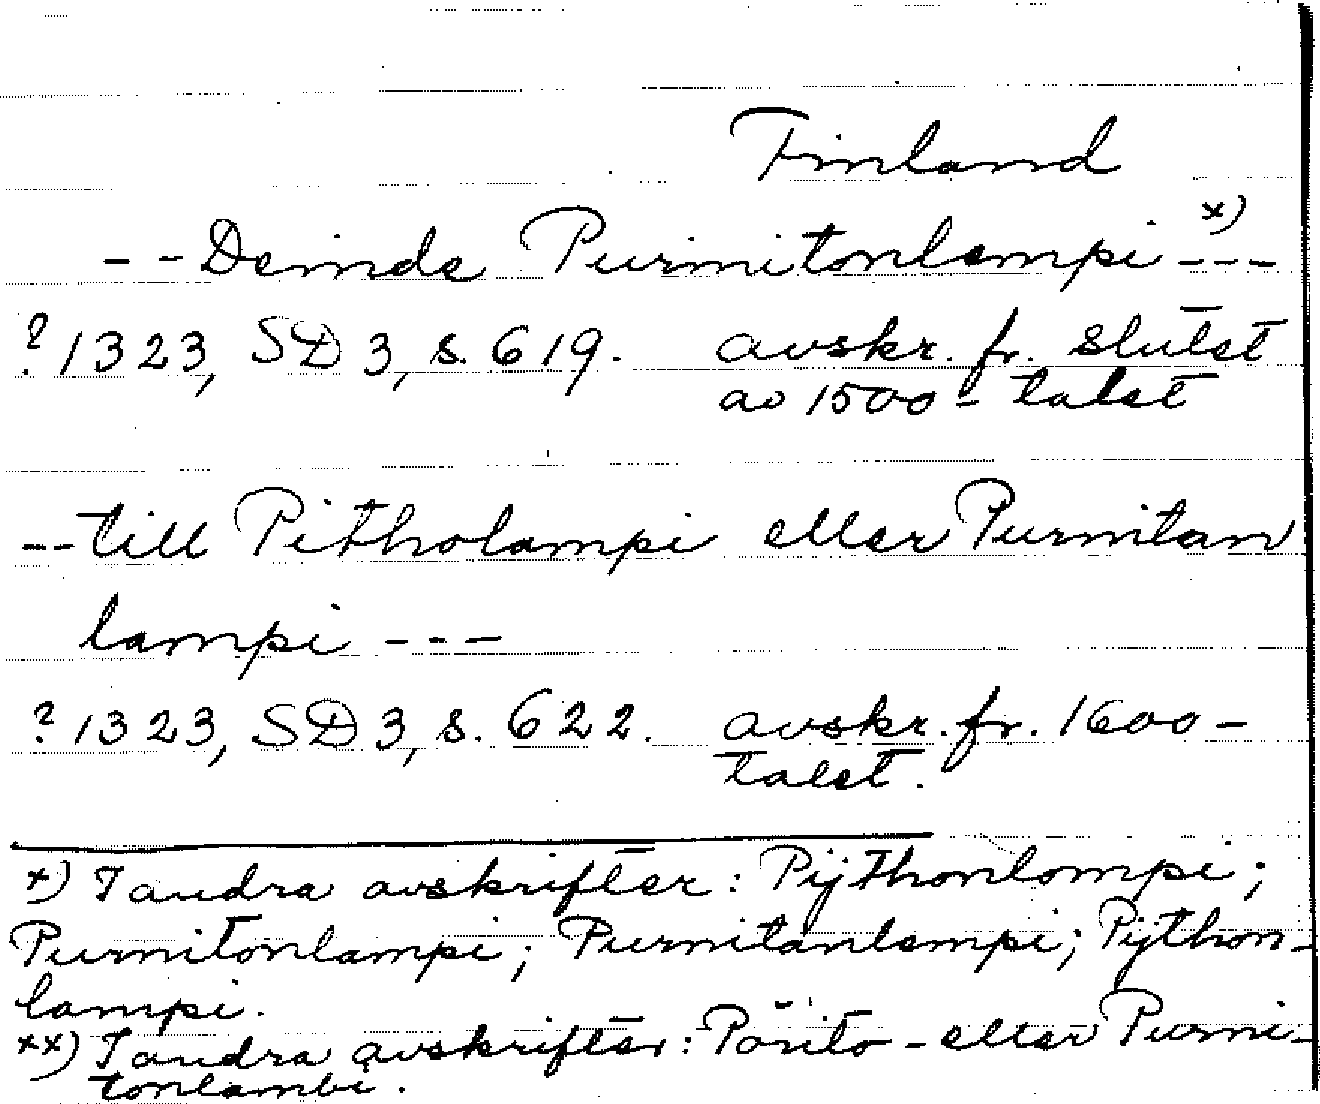 Finland
-- Deinde Purmitonlempi x) ---
? 1323, SD 3, s. 619. avskr. fr. slutet
av 1500-talet
-- till Pitholampi eller Purnitan
lampi ---
? 1323, SD 3, s. 622. avskr. fr. 1600-
talet.
x) I andra avskrifter: Pijthonlompi;
Purnitonlampi; Purnitanlempi; Pijthon-
lampi.
xx) I andra avskrifter: Pönito- eller Purni-
tonlambi.